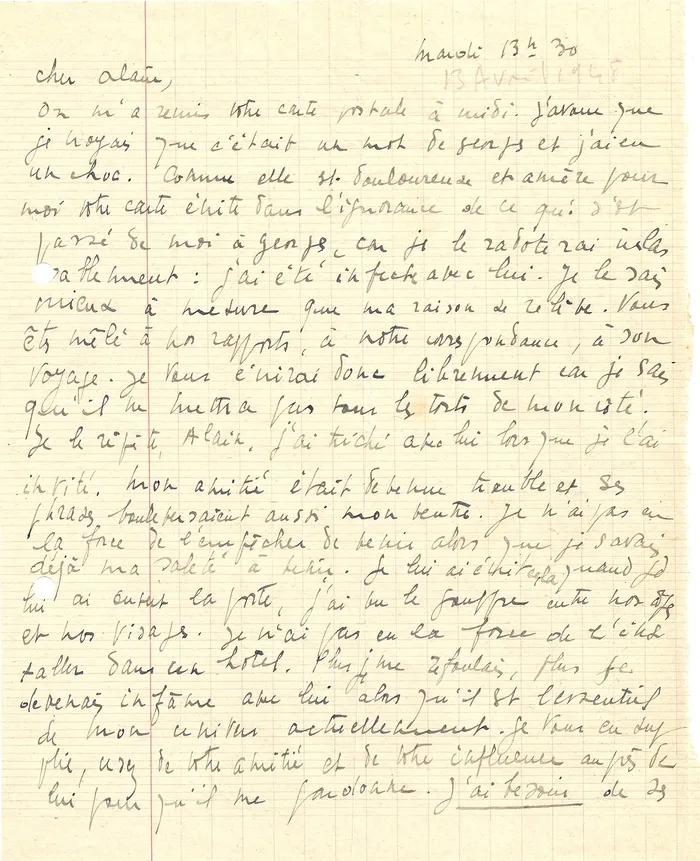 Mardi 13h 30
13 Avril 1948
cher Alain,
On m'a remis votre carte postale à midi. J'avoue que
je croyais que c'était un mot de Georges et j'ai eu
un choc. Comme elle est douloureuse et amère pour
moi votre carte écrite dans l'ignorance de ce qui s'est
passé de moi à Georges, car je le radoterai inlas
sablement : j'ai été infecte avec lui. Je le sais
mieux à mesure que ma raison se relève. Vous
êtes mêlé à nos rapports, à notre correspondance, à son
voyage. Je vous écrirai donc librement car je sais
qu'il ne mettra pas tous les torts de mon côté.
Je le répète, Alain, j'ai triché avec lui lorsque je l'ai
invité. Mon amitié était devenue trouble et ses
phrases bouleversaient aussi mon ventre. Je n'ai pas eu
la force de l'empêcher de venir alors que je savais
déjà ma saleté à venir. Je lui ai écrit cela quand je
lui ai ouvert la porte, j'ai vu le gouffre entre nos âges
et nos visages. Je n'ai pas eu la force de l'ins
taller dans un hôtel. Plus je me refoulais, plus je
devenais infâme avec lui alors qu'il est l'essentiel
de mon univers actuellement. Je vous en sup
plie, usez de votre amitié et de votre influence auprès de
lui pour qu'il me pardonne. J'ai besoin de ses